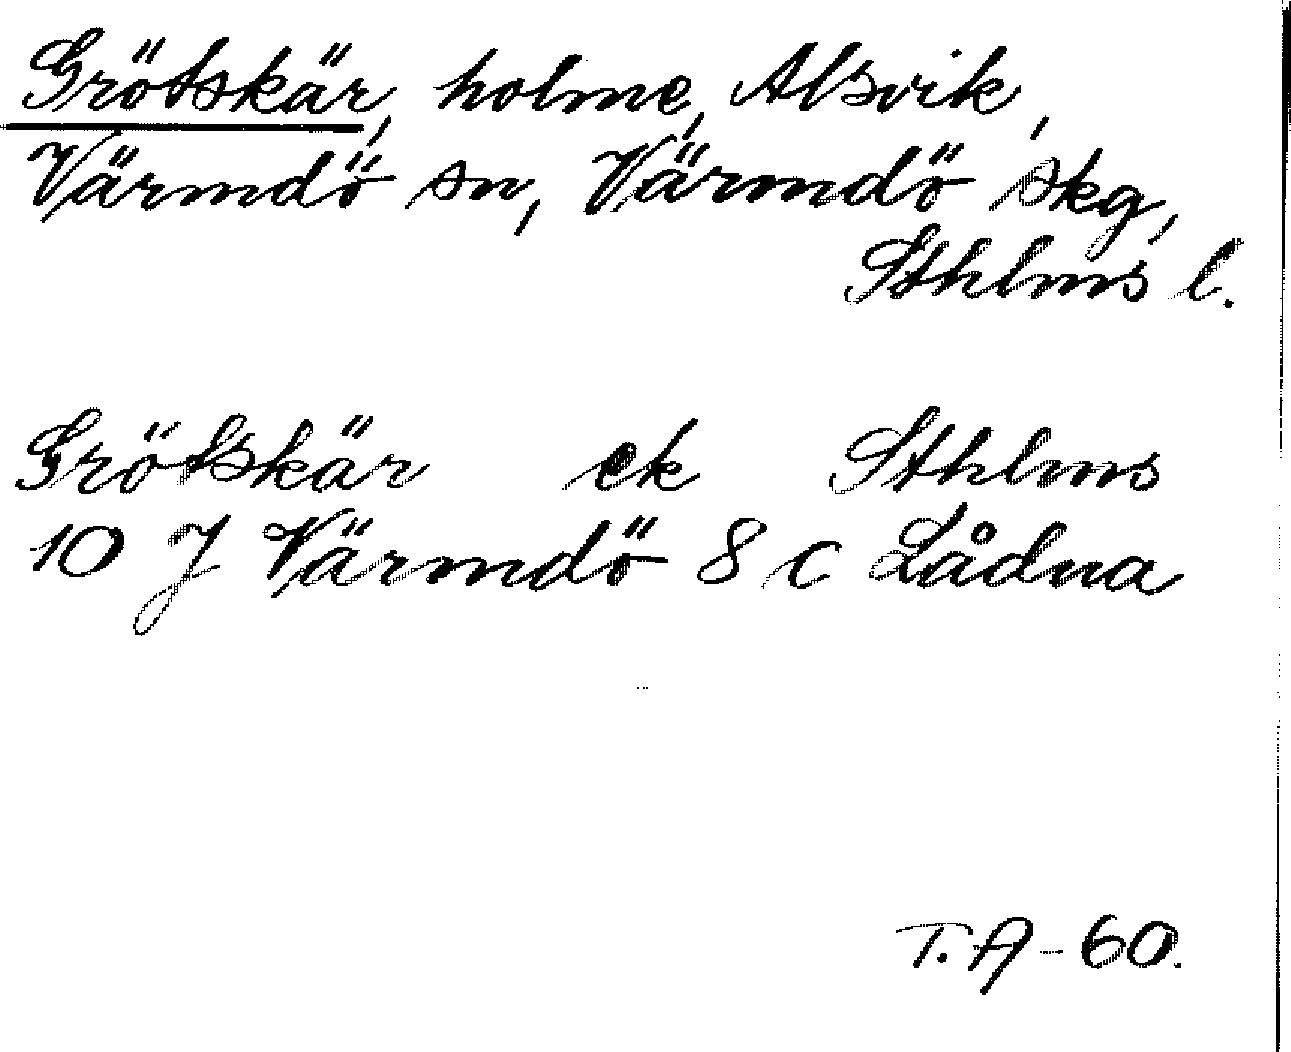 Grötskär, holme, Alsvik,
Värmdö sn, Värmdö skg,
Sthlms l.
Grötskär ek Sthlms
10 J Värmdö 8 c Lådna
T.A-60.